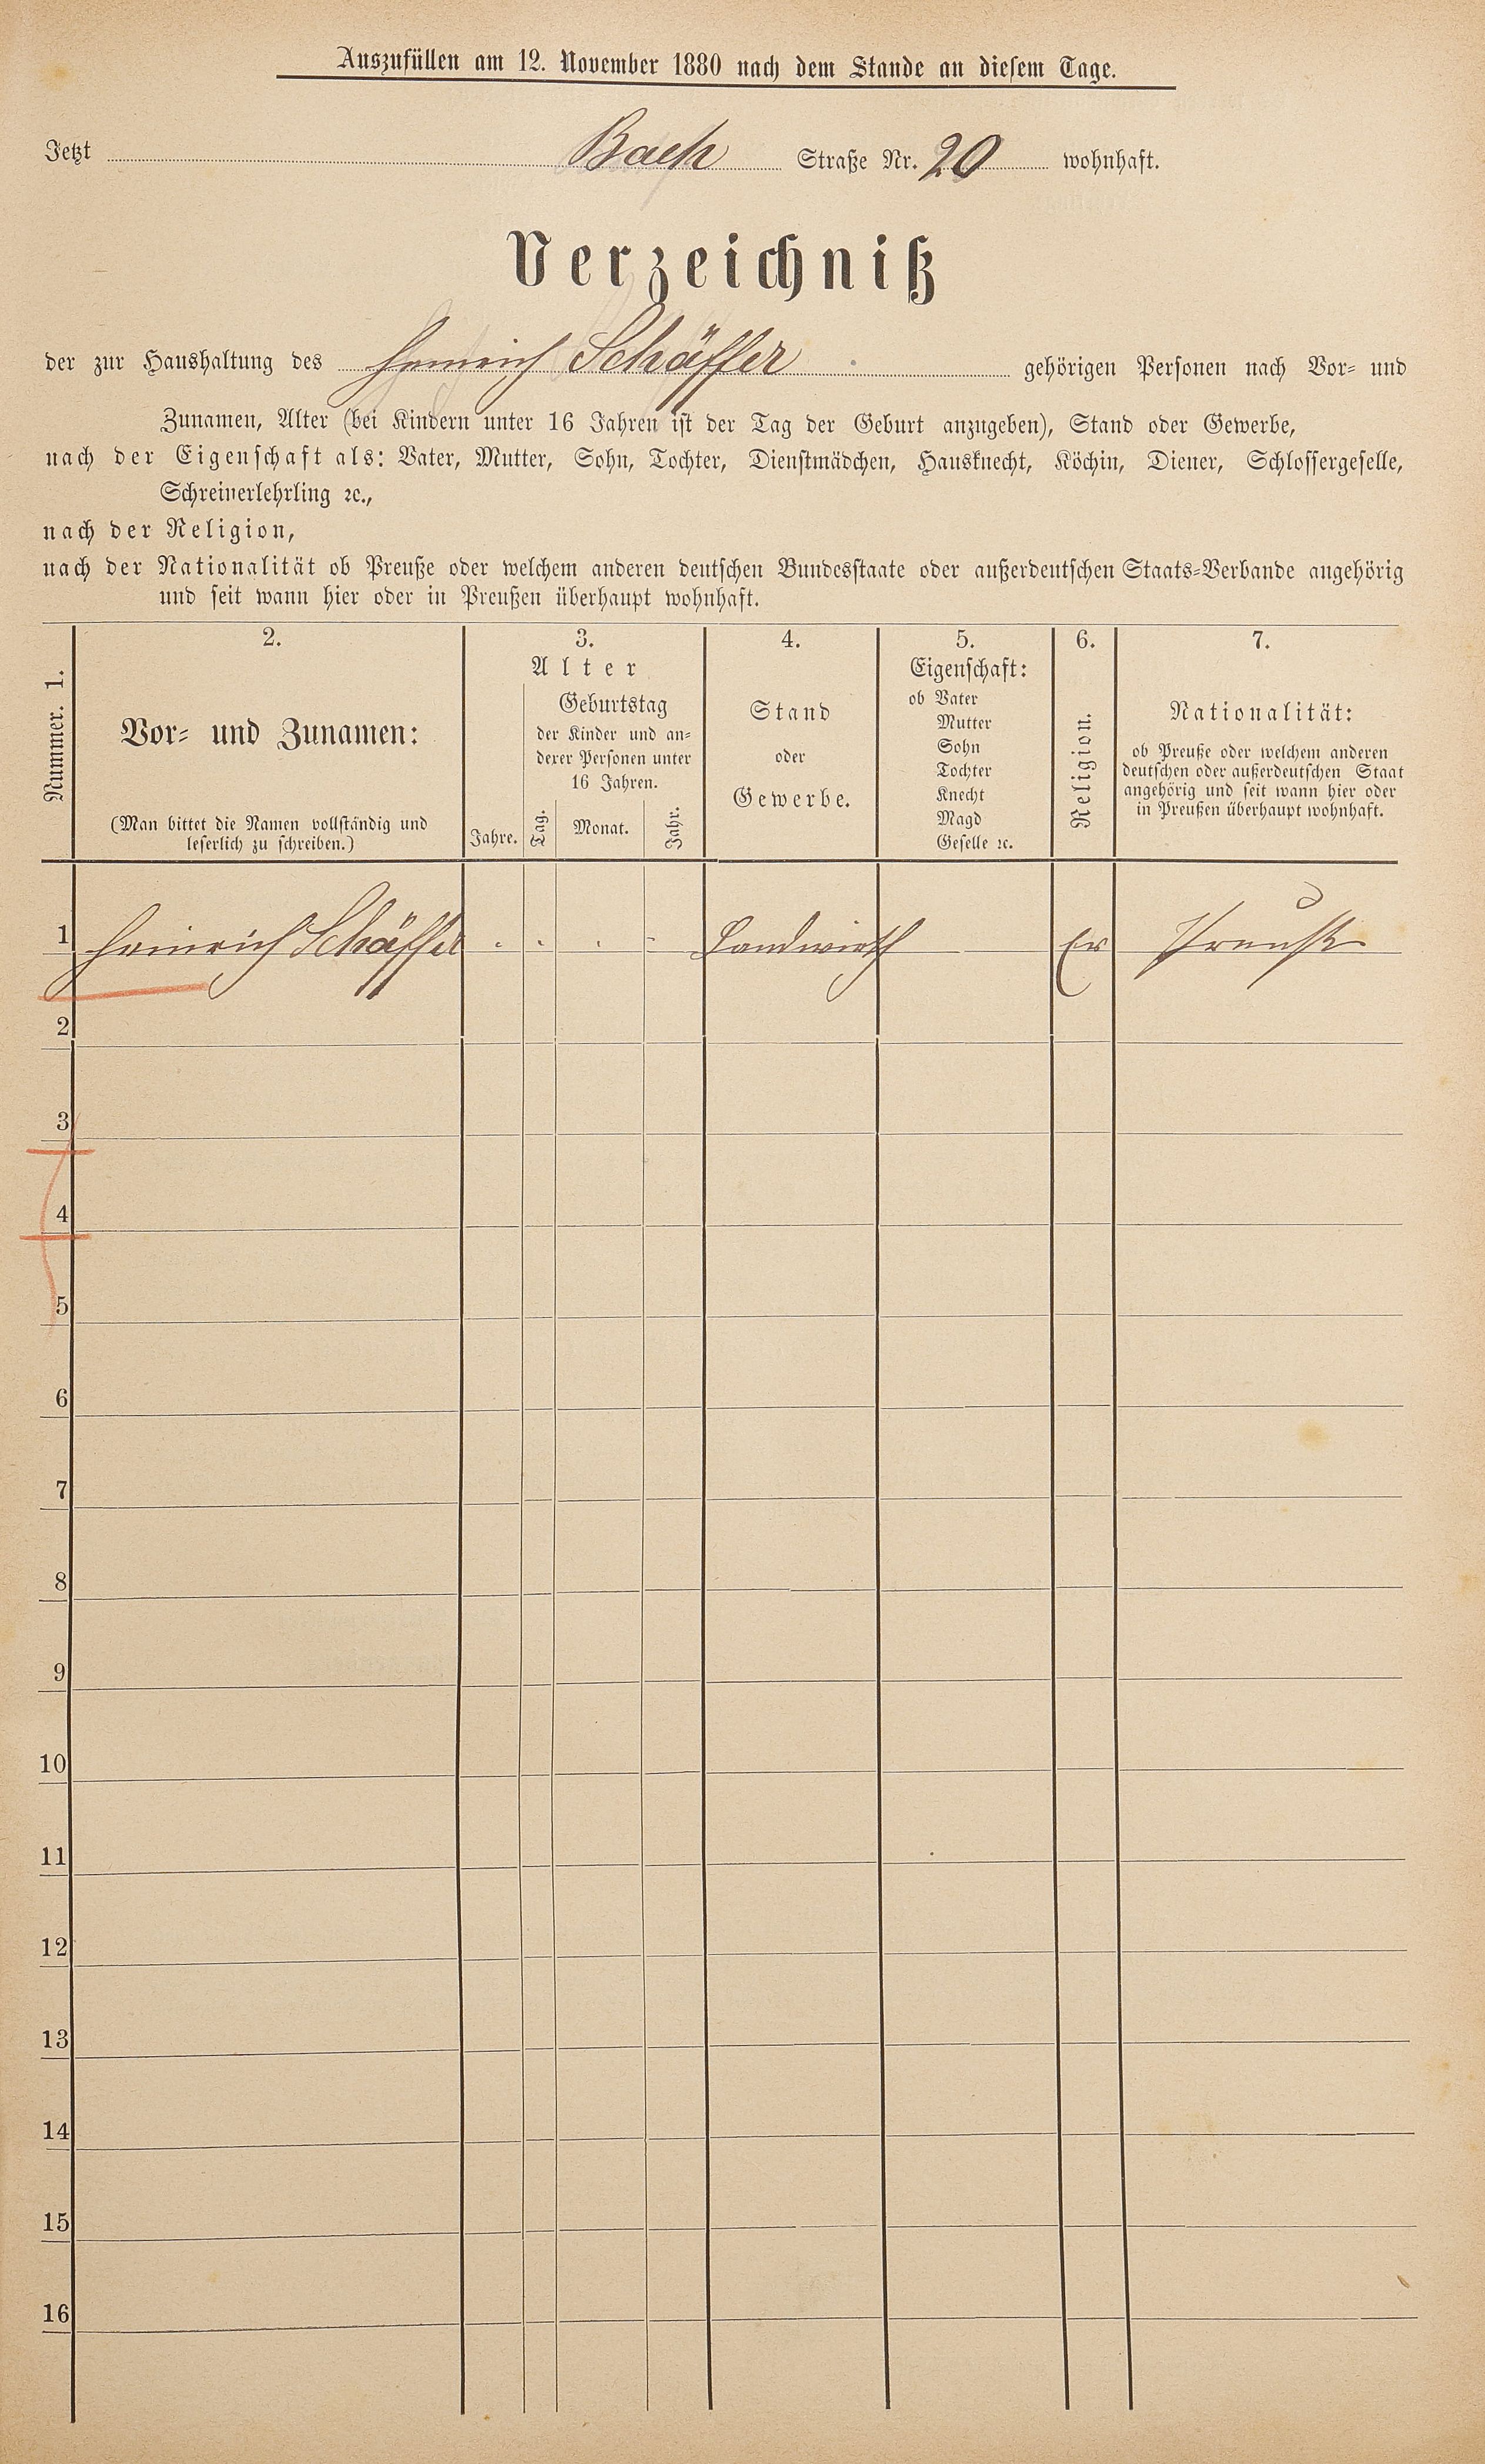 Auszufüllen am 12. November 1880 nach dem Stande an diesem Tage.
Jetzt Bach Straße Nr. 20 wohnhaft.
Verzeichniß
der zur Haushaltung des Heinrich Schäffer gehörigen Personen nach Vor- und
Zunamen, Alter (bei Kindern unter 16 Jahren ist der Tag der Geburt anzugeben), Stand oder Gewerbe,
nach der Eigenschaft als: Vater, Mutter, Sohn, Tochter, Dienstmädchen, Hausknecht, Köchin, Diener, Schlossergeselle,
Schreinerlehrling ꝛc.,
nach der Religion,
nach der Nationalität ob Preuße oder welchem anderen deutschen Bundesstaate oder außerdeutschen Staats-Verbande angehörig
und seit wann hier oder in Preußen überhaupt wohnhaft.
Nummer. 1.
2.
Vor- und Zunamen:
(Man bittet die Namen vollständig und
leserlich zu schreiben.)
3.
Alter
Jahre.
Geburtstag
der Kinder und an-
derer Personen unter
16 Jahren.
Tag.
Monat.
Jahr.
4.
Stand
oder
Gewerbe.
5.
Eigenschaft:
ob Vater
Mutter
Sohn
Tochter
Knecht
Magd
Geselle ꝛc.
6.
Religion.
7.
Nationalität:
ob Preuße oder welchem anderen
deutschen oder außerdeutschen Staat
angehörig und seit wann hier oder
in Preußen überhaupt wohnhaft.
1 Heinrich Schäffer Landwirth Ev Preuße
2
3
4
5
6
7
8
9
10
11
12
13
14
15
16